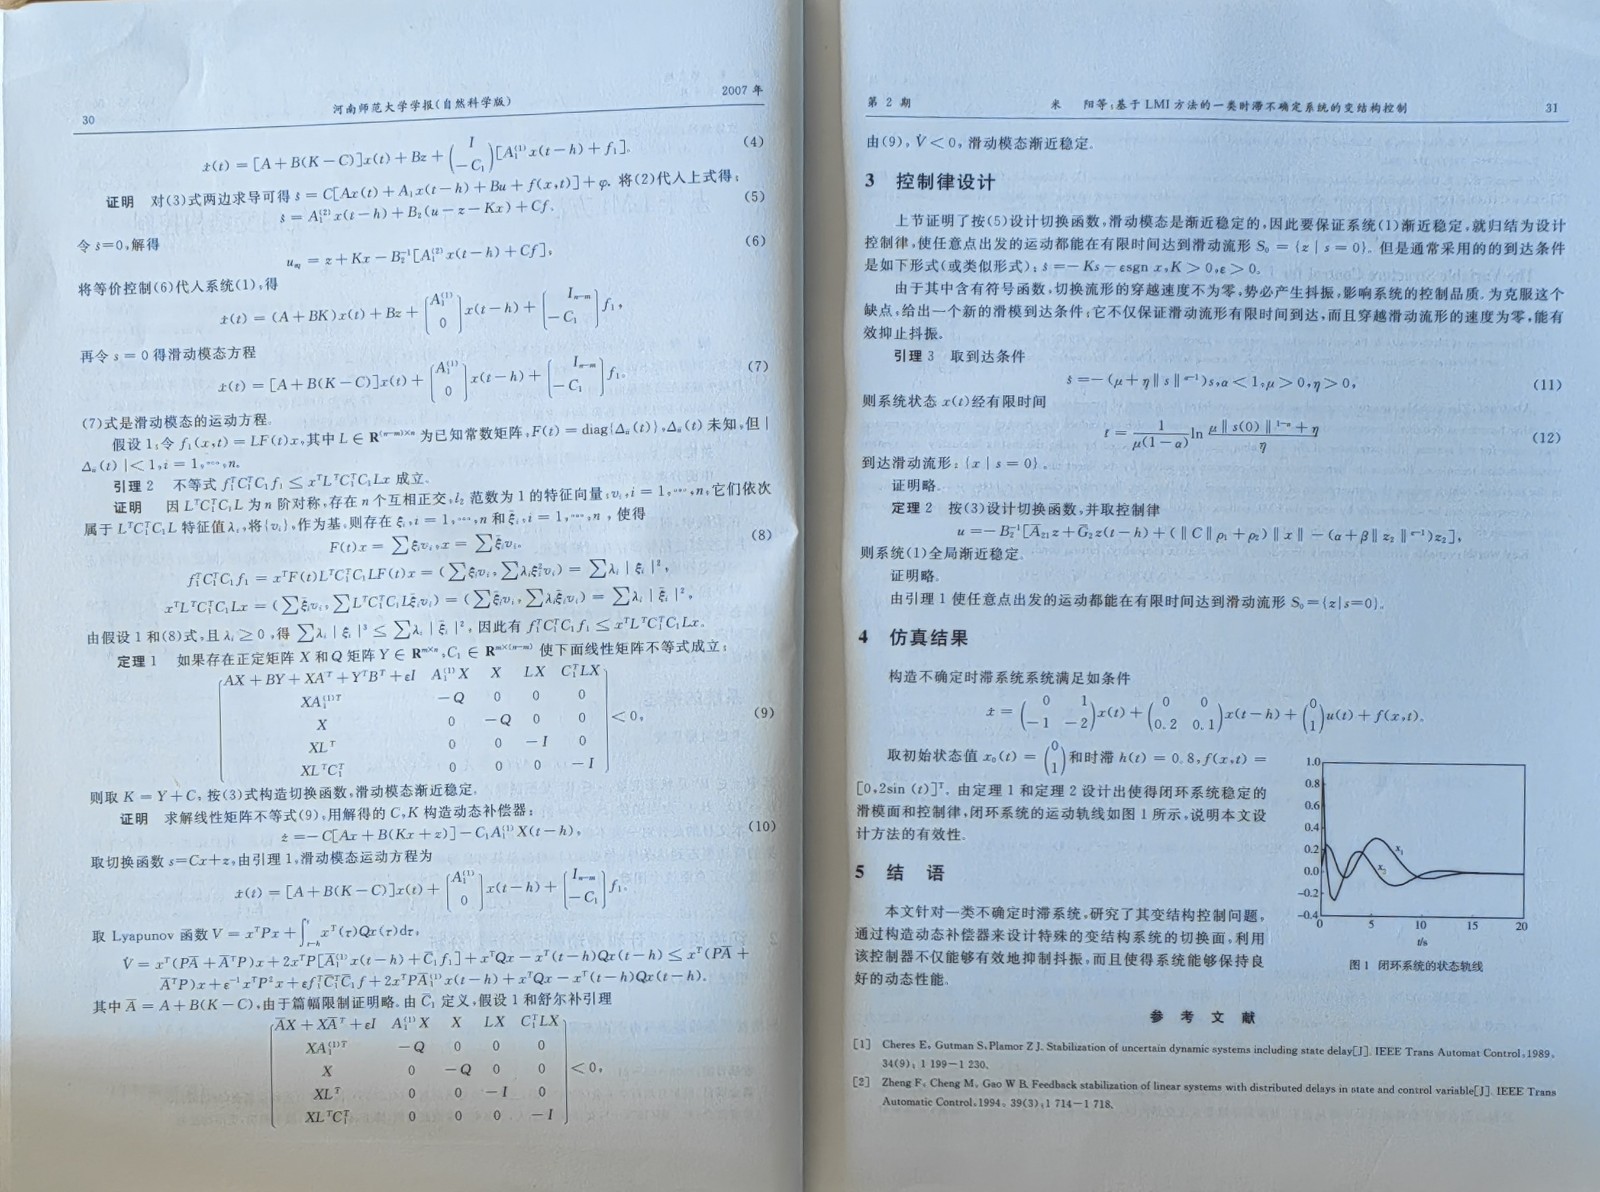 30
河南师范大学学报(自然科学版)
2007 年
ẋ(t) = [A+B(K−C)]x(t)+Bz+(I −C₁)[A₁⁽¹⁾x(t−h)+f₁]. (4)
证明 对(3)式两边求导可得 ṡ = C[Ax(t)+A₁x(t−h)+Bu+f(x,t)]+φ. 将(2)代人上式得:
ṡ = A₁⁽²⁾x(t−h)+B₂(u−z−Kx)+Cf. (5)
令 ṡ=0,解得
u_eq = z+Kx−B₂⁻¹[A₁⁽²⁾x(t−h)+Cf], (6)
将等价控制(6)代人系统(1),得
ẋ(t) = (A+BK)x(t)+Bz+[A₁⁽¹⁾ 0]x(t−h)+[Iₙ₋ₘ −C₁]f₁,
再令 s = 0 得滑动模态方程
ẋ(t) = [A+B(K−C)]x(t)+[A₁⁽¹⁾ 0]x(t−h)+[Iₙ₋ₘ −C₁]f₁. (7)
(7)式是滑动模态的运动方程.
假设 1:令 f₁(x,t) = LF(t)x,其中 L ∈ R⁽ⁿ⁻ᵐ⁾ˣⁿ 为已知常数矩阵,F(t) = diag{Δᵢᵢ(t)},Δᵢᵢ(t) 未知,但 |
Δᵢᵢ(t) |<1,i = 1,…,n.
引理 2 不等式 f₁ᵀC₁ᵀC₁f₁ ≤ xᵀLᵀC₁ᵀC₁Lx 成立.
证明 因 LᵀC₁ᵀC₁L 为 n 阶对称,存在 n 个互相正交,l₂ 范数为 1 的特征向量:vᵢ,i = 1,…,n,它们依次
属于 LᵀC₁ᵀC₁L 特征值 λᵢ,将{vᵢ},作为基,则存在 ξᵢ,i = 1,…,n 和 ξ̄ᵢ,i = 1,…,n ,使得
F(t)x = ∑ξᵢvᵢ,x = ∑ξ̄ᵢvᵢ. (8)
f₁ᵀC₁ᵀC₁f₁ = xᵀF(t)LᵀC₁ᵀC₁LF(t)x = (∑ξᵢvᵢ,∑λᵢξᵢ²vᵢ) = ∑λᵢ | ξᵢ |²,
xᵀLᵀC₁ᵀC₁Lx = (∑ξ̄ᵢvᵢ,∑LᵀC₁ᵀC₁Lξ̄ᵢvᵢ) = (∑ξ̄ᵢvᵢ,∑λᵢξ̄ᵢvᵢ) = ∑λᵢ | ξ̄ᵢ |²,
由假设 1 和(8)式,且 λᵢ ≥ 0,得 ∑λᵢ | ξᵢ |³ ≤ ∑λᵢ | ξ̄ᵢ |²,因此有 f₁ᵀC₁ᵀC₁f₁ ≤ xᵀLᵀC₁ᵀC₁Lx.
定理 1 如果存在正定矩阵 X 和 Q 矩阵 Y ∈ Rᵐˣⁿ,C₁ ∈ Rᵐˣ⁽ⁿ⁻ᵐ⁾ 使下面线性矩阵不等式成立:
AX+BY+XAᵀ+YᵀBᵀ+εI A₁⁽¹⁾X X LX C₁ᵀLX
XA₁⁽¹⁾ᵀ −Q 0 0 0
X 0 −Q 0 0 <0, (9)
XLᵀ 0 0 −I 0
XLᵀC₁ᵀ 0 0 0 −I
则取 K = Y+C, 按(3)式构造切换函数,滑动模态渐近稳定.
证明 求解线性矩阵不等式(9),用解得的 C,K 构造动态补偿器:
ż = −C[Ax+B(Kx+z)]−C₁A₁⁽¹⁾X(t−h), (10)
取切换函数 s=Cx+z,由引理 1,滑动模态运动方程为
ẋ(t) = [A+B(K−C)]x(t)+[A₁⁽¹⁾ 0]x(t−h)+[Iₙ₋ₘ −C₁]f₁.
取 Lyapunov 函数 V = xᵀPx+∫ₜ₋ₕᵗ xᵀ(τ)Qx(τ)dτ,
V̇ = xᵀ(PĀ+ĀᵀP)x+2xᵀP[Ā₁⁽¹⁾x(t−h)+C̄₁f₁]+xᵀQx−xᵀ(t−h)Qx(t−h) ≤ xᵀ(PĀ+
ĀᵀP)x+ε⁻¹xᵀP²x+εf₁ᵀC̄₁ᵀC̄₁f+2xᵀPĀ₁⁽¹⁾x(t−h)+xᵀQx−xᵀ(t−h)Qx(t−h).
其中 Ā = A+B(K−C),由于篇幅限制证明略. 由 C̄₁ 定义,假设 1 和舒尔补引理
ĀX+XĀᵀ+εI A₁⁽¹⁾X X LX C₁ᵀLX
XA₁⁽¹⁾ᵀ −Q 0 0 0
X 0 −Q 0 0 <0,
XLᵀ 0 0 −I 0
XLᵀC₁ᵀ 0 0 0 −I
第 2 期
米 阳等:基于 LMI 方法的一类时滞不确定系统的变结构控制
31
由(9), V̇<0, 滑动模态渐近稳定.
3 控制律设计
上节证明了按(5)设计切换函数,滑动模态是渐近稳定的,因此要保证系统(1)渐近稳定,就归结为设计
控制律,使任意点出发的运动都能在有限时间达到滑动流形 S₀ = {z | s = 0}. 但是通常采用的的到达条件
是如下形式(或类似形式): ṡ =−Ks−εsgn x,K>0,ε>0.
由于其中含有符号函数,切换流形的穿越速度不为零,势必产生抖振,影响系统的控制品质. 为克服这个
缺点,给出一个新的滑模到达条件:它不仅保证滑动流形有限时间到达,而且穿越滑动流形的速度为零,能有
效抑止抖振.
引理 3 取到达条件
ṡ =−(μ+η‖s‖^(α−1))s,α<1,μ>0,η>0, (11)
则系统状态 x(t)经有限时间
t = 1/(μ(1−α)) ln (μ‖s(0)‖^(1−α)+η)/η (12)
到达滑动流形:{x | s = 0}.
证明略.
定理 2 按(3)设计切换函数,并取控制律
u =−B₂⁻¹[Ā₂₁z+Ḡ₂z(t−h)+(‖C‖ρ₁+ρ₂)‖x‖−(α+β‖z₂‖^(α−1))z₂],
则系统(1)全局渐近稳定.
证明略.
由引理 1 使任意点出发的运动都能在有限时间达到滑动流形 S₀={z|s=0}.
4 仿真结果
构造不确定时滞系统系统满足如条件
ẋ = (0 1 −1 −2)x(t)+(0 0 0.2 0.1)x(t−h)+(0 1)u(t)+f(x,t).
取初始状态值 x₀(t) = (0 1)和时滞 h(t) = 0.8,f(x,t) =
[0,2sin (t)]ᵀ. 由定理 1 和定理 2 设计出使得闭环系统稳定的
滑模面和控制律,闭环系统的运动轨线如图 1 所示,说明本文设
计方法的有效性.
1.0
0.8
0.6
0.4
0.2
0.0
−0.2
−0.4
0 5 10 15 20
x₁
x₂
t/s
图 1 闭环系统的状态轨线
5 结 语
本文针对一类不确定时滞系统,研究了其变结构控制问题,
通过构造动态补偿器来设计特殊的变结构系统的切换面,利用
该控制器不仅能够有效地抑制抖振,而且使得系统能够保持良
好的动态性能.
参 考 文 献
[1] Cheres E, Gutman S, Plamor Z J. Stabilization of uncertain dynamic systems including state delay[J]. IEEE Trans Automat Control,1989,
34(9): 1 199−1 230.
[2] Zheng F, Cheng M, Gao W B. Feedback stabilization of linear systems with distributed delays in state and control variable[J]. IEEE Trans
Automatic Control,1994, 39(3):1 714−1 718.